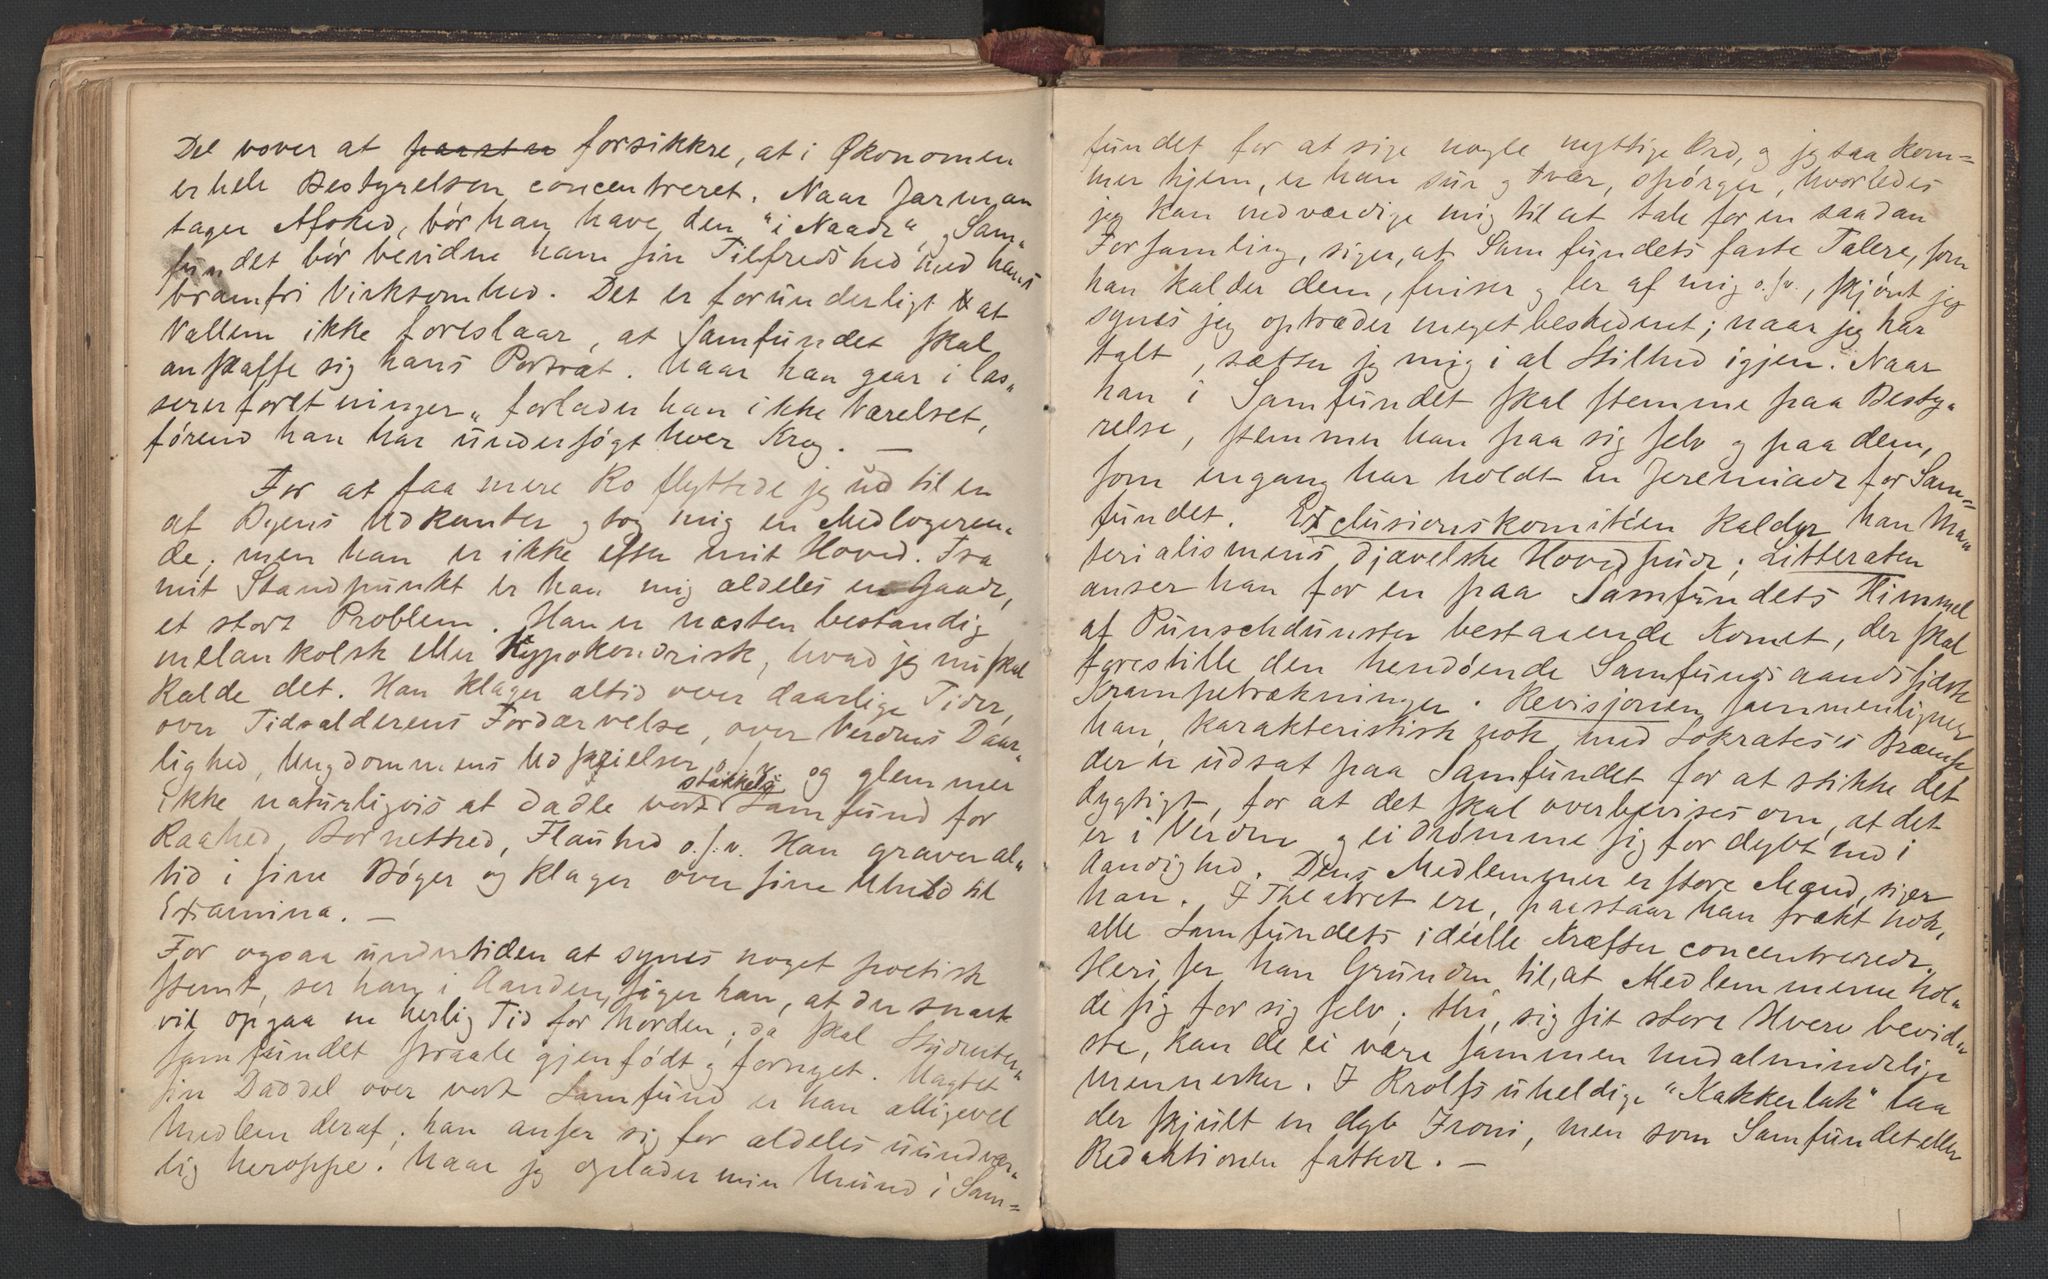 Del vover at paastaa forsikkre, at i Økonomen
er hele Bestyrelsen concentreret. Naar Jarman
tager Afsked, bør han have den "i Naade", Sam„
fundet bør bevidne ham sin Tilfredshed med hans
bramfri Virksomhed. Det er forunderligt at
Vallem ikke foreslaar, at Samfundet skal
anskaffe sig hans Portræt. Naar han gaar i Cas„
sererforretninger„ forlader han ikke Værelset,
førend han har undersøgt hver Krog. —
For at faa mere Ro flyttede jeg ud til en
af Byens Udkanter og tog mig en Medlogeren„
de; men han er ikke efter mit Hoved. Fra
mit Standpunkt er han mig aldeles en Gaade,
et stort Problem. Han er næsten bestandig
melankolsk eller Hypokondrisk, hvad jeg nu skal
kalde det. Han klager altid over daarlige Tider,
over Tidsalderens Fordærvelse, over Verdens Daar„
lighed, Ungdommens Udskeielser o.s.v. og glemmer
ikke naturligvis at dadle vort stakkels Samfund for
Raahed, Bornethed, Flauhed o.s.v. Han graver al„
tid i sine Bøger og klager over sine Uheld til
Examina. —
For ogsaa undertiden at synes noget poetisk
stemt, ser han i Aanden, siger han, at der snart
vil opgaa en herlig Tid for Norden; da skal Studenter„
samfundet straale gjenfødt og fornyet. Uagtet
sin Daddel over vort Samfund er han alligevel
Medlem deraf; han anser sig for aldeles uundvær„
lig heroppe. Naar jeg oplader min Mund i Sam=
fundet for at sige nogle nyttige Ord, og jeg saa kom=
mer hjem, er han sur og tvær, spørger, hvorledes
jeg kan nedværdige mig til at tale for en saadan
Forsamling, siger, at Samfundets faste Talere, som
han kalder dem, fniser og ler af mig o.s.v., skjønt jeg
synes jeg optræder meget beskedent; naar jeg har
talt, sætter jeg mig i al Stilhed igjen. Naar
han i Samfundet skal stemme paa Besty„
relse, stemmer han paa sig selv og paa dem,
som engang har holdt en Jeremiade for Sam=
fundet. Exclusionskomitéen kalder han Ma„
terialismens djævelske Hovedpude; Litteraten
anser han for en paa Samfundets Himmel
af Punschdunster bestaaende Komet, der skal
forestille den hendøende Samfundsaands sidste
Krampetrækninger. Revisjonen sammenligner
han, karakteristisk nok, med Sokrates's Bræmse
der er udsat paa Samfundet for at stikke det
dygtigt, for at det skal overbevises om, at det
er i Verden og ei drømme sig for dybt ned i
Aandighed. Dens Medlemmer er store Mænd, siger
han. I Theatret ere, paastaar han frækt nok,
alle Samfundets ideelle Kræfter concentrerede.
Heri ser han Grunden til, at Medlemmerne hol„
de sig for sig selv; thi, sig sit store Hverv bevid„
ste, kan de ei være sammen med almindelige
Mennesker. I Krolfs uheldige "Kakkerlak" laa
der skjult en dyb Ironi, men som Samfundet eller
Redaktionen fattede. —